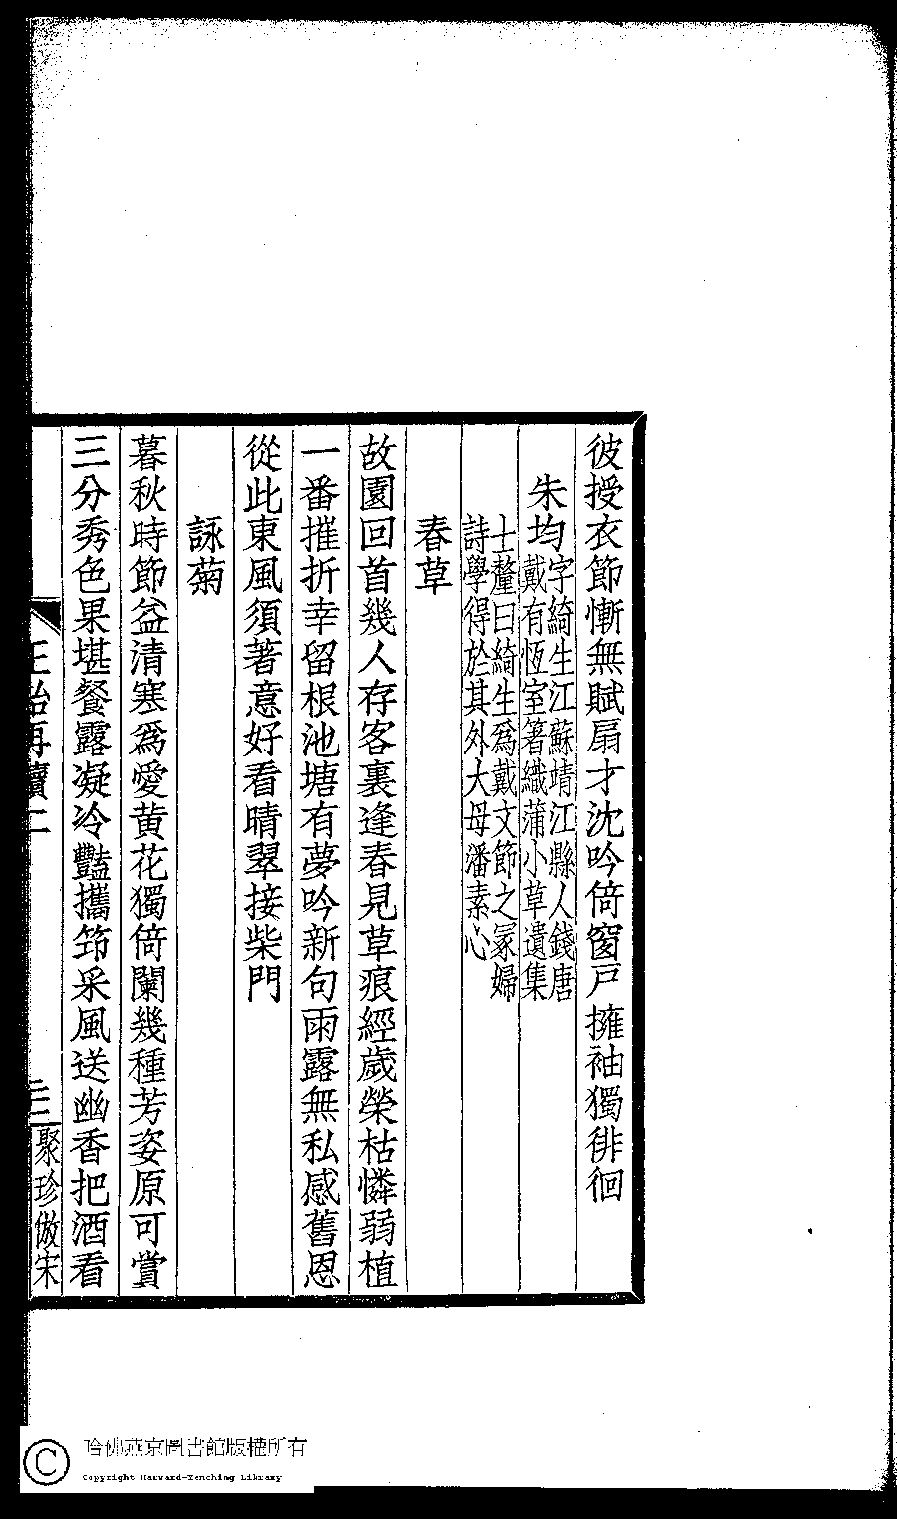 彼授衣節慚無賦扇才沈吟倚窗戸擁袖獨徘徊
朱均
字綺生江蘇靖江縣人錢唐
戴有恆室箸織蒲小草遺集
士釐曰綺生爲戴文節之冢婦
詩學得於其外大母潘素心
春草
故園回首幾人存客裏逢春見草痕經歲榮枯憐弱植
一番摧折幸留根池塘有夢吟新句雨露無私感舊恩
從此東風須著意好看晴翠接柴門
詠菊
暮秋時節益清寒爲愛黄花獨倚闌幾種芳姿原可賞
三分秀色果堪餐露凝冷豔攜筇采風送幽香把酒看
正始再續二
三
聚珍倣宋
哈佛燕京圖書館版權所有
Copyright Harvard-Yenching Library